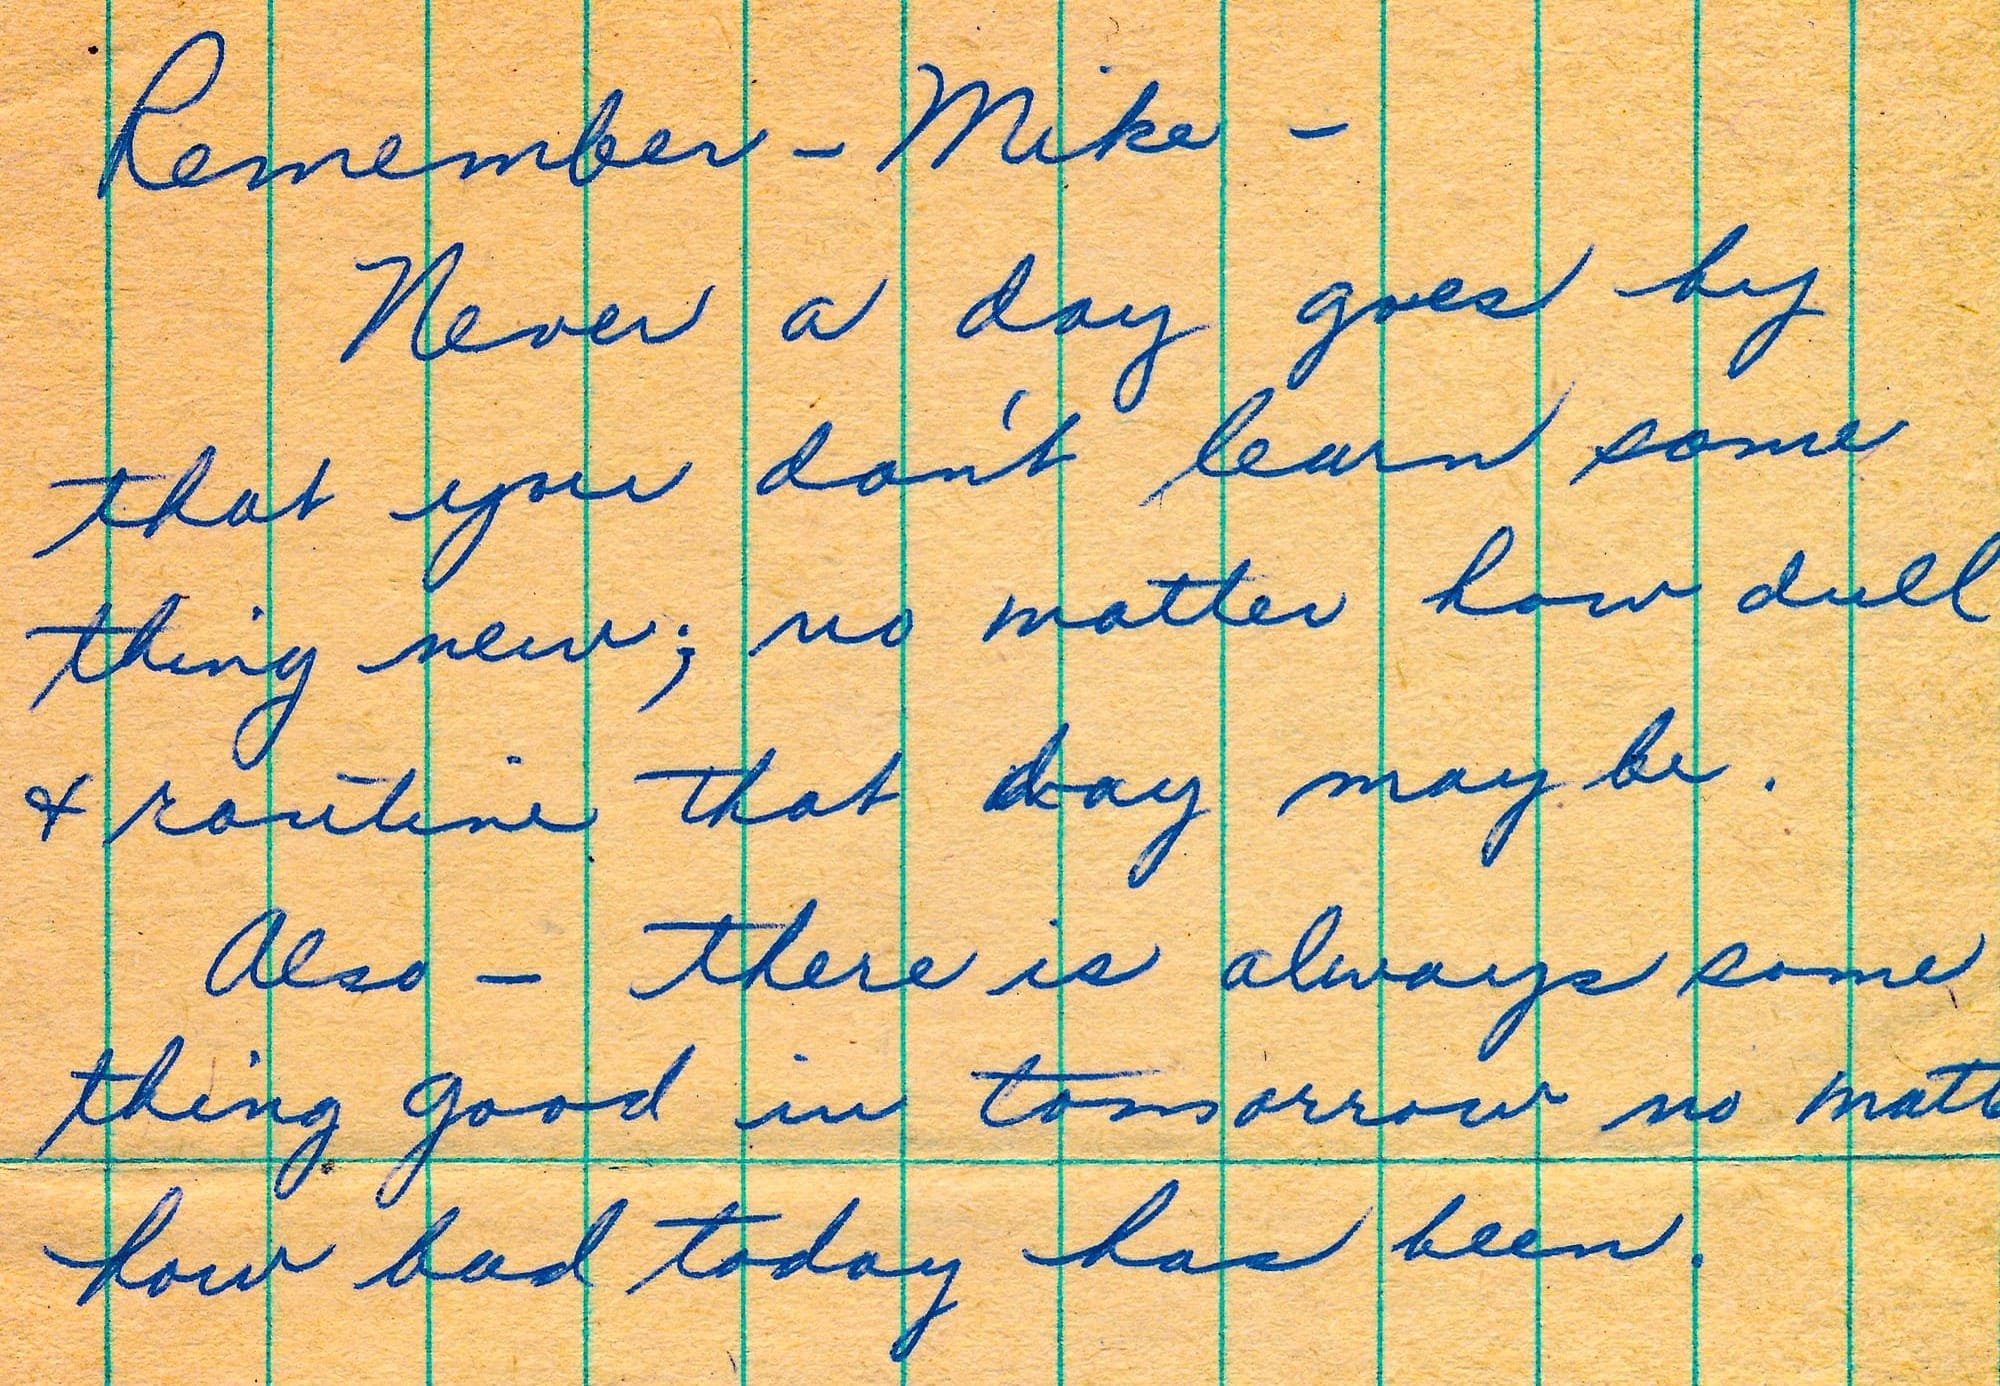 Remember - Mike -
Never a day goes by
that you don't learn some
thing new; no matter how dull
& routine that day may be.
Also - there is always some
thing good in tomorrow no matt
how bad today has been.